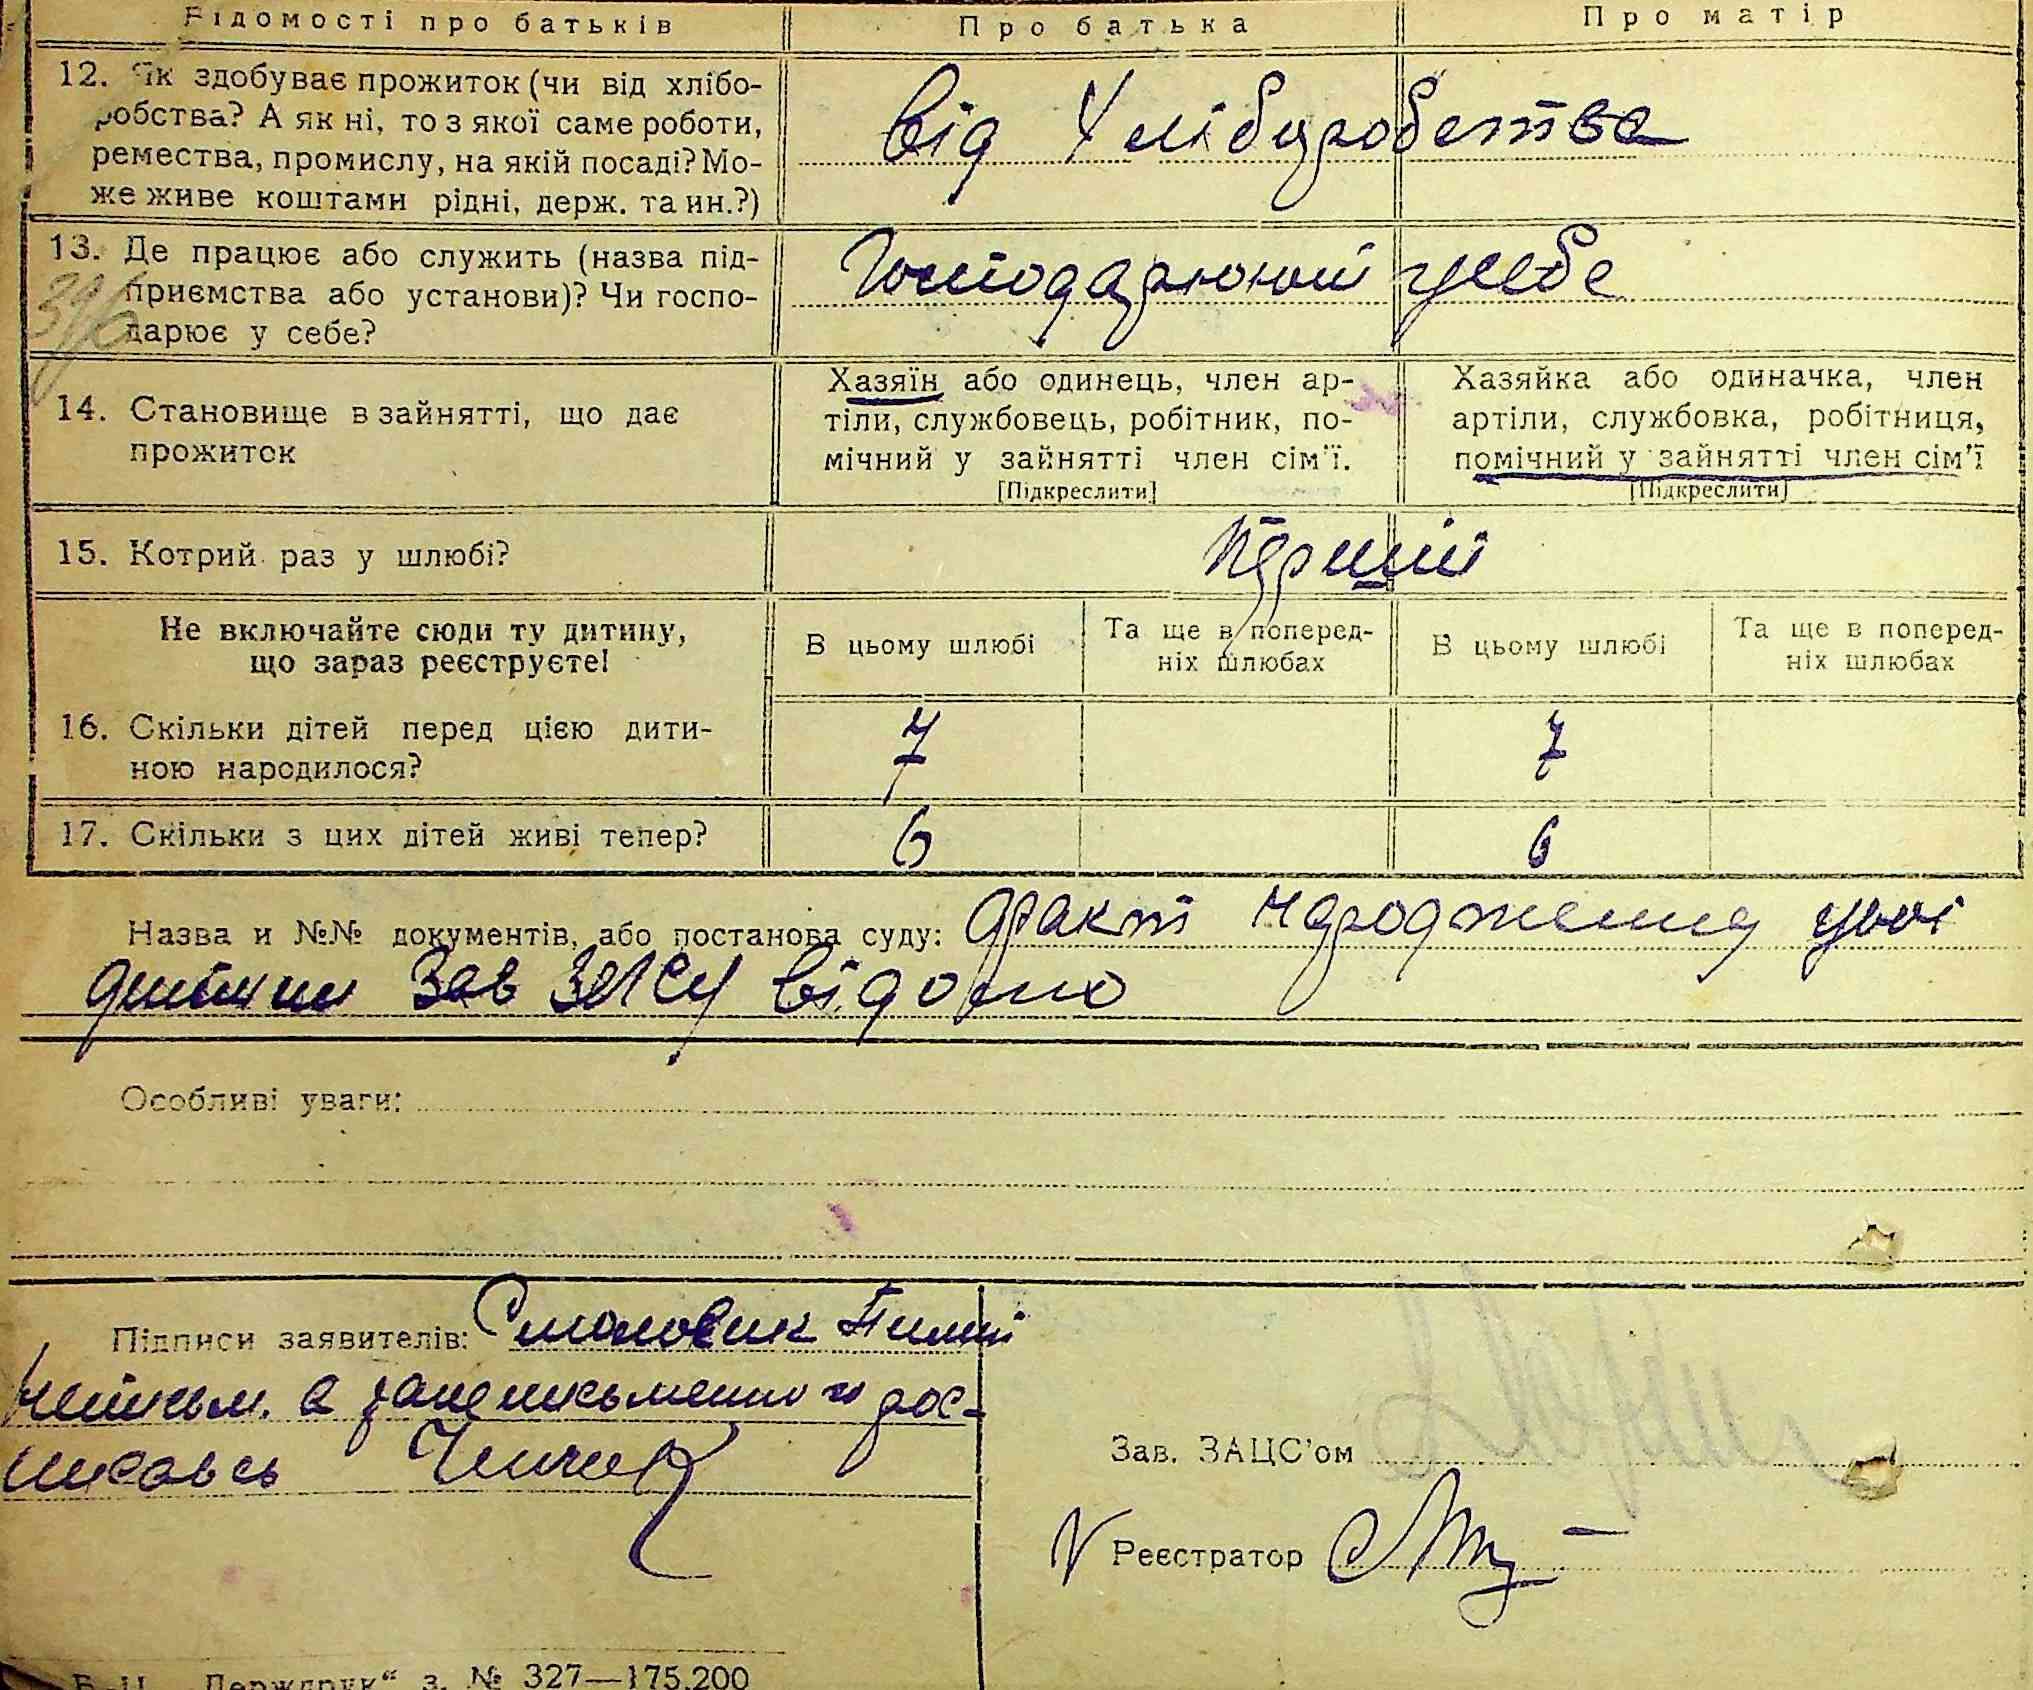 Відомості про батьків
Про батька
Про матір
12. Як здобуває прожиток (чи від хлібо-
робства? А як ні, то з якої саме роботи,
ремества, промислу, на якій посаді? Мо-
же живе коштами рідні, держ. та ин.?)
від Хліборобства
13. Де працює або служить (назва під-
приємства або установи)? Чи госпо-
дарює у себе?
Господарюють у себе
14. Становище в зайнятті, що дає
прожиток
Хазяїн або одинець, член ар-
тіли, службовець, робітник, по-
мічний у зайнятті член сім'ї.
[Підкреслити]
Хазяйка або одиначка, член
артіли, службовка, робітниця,
помічний у зайнятті член сім'ї
[Підкреслити]
15. Котрий раз у шлюбі?
Перший
Не включайте сюди ту дитину,
що зараз реєструєте!
В цьому шлюбі
Та ще в поперед-
ніх шлюбах
В цьому шлюбі
Та ще в поперед-
ніх шлюбах
16. Скільки дітей перед цією дити-
ною народилося?
7
7
17. Скільки з цих дітей живі тепер?
6
6
Назва и №№ документів, або постанова суду: Факт народження цієї
дитини Зав ЗАГСу відомо
Особливі уваги:
Підписи заявителів: Смоловик
неписьм. а за неписьменного рос-
писавсь
Зав. ЗАЦС'ом
V Реєстратор
Б-Ц. „Держдрук“ з. № 327—175.200